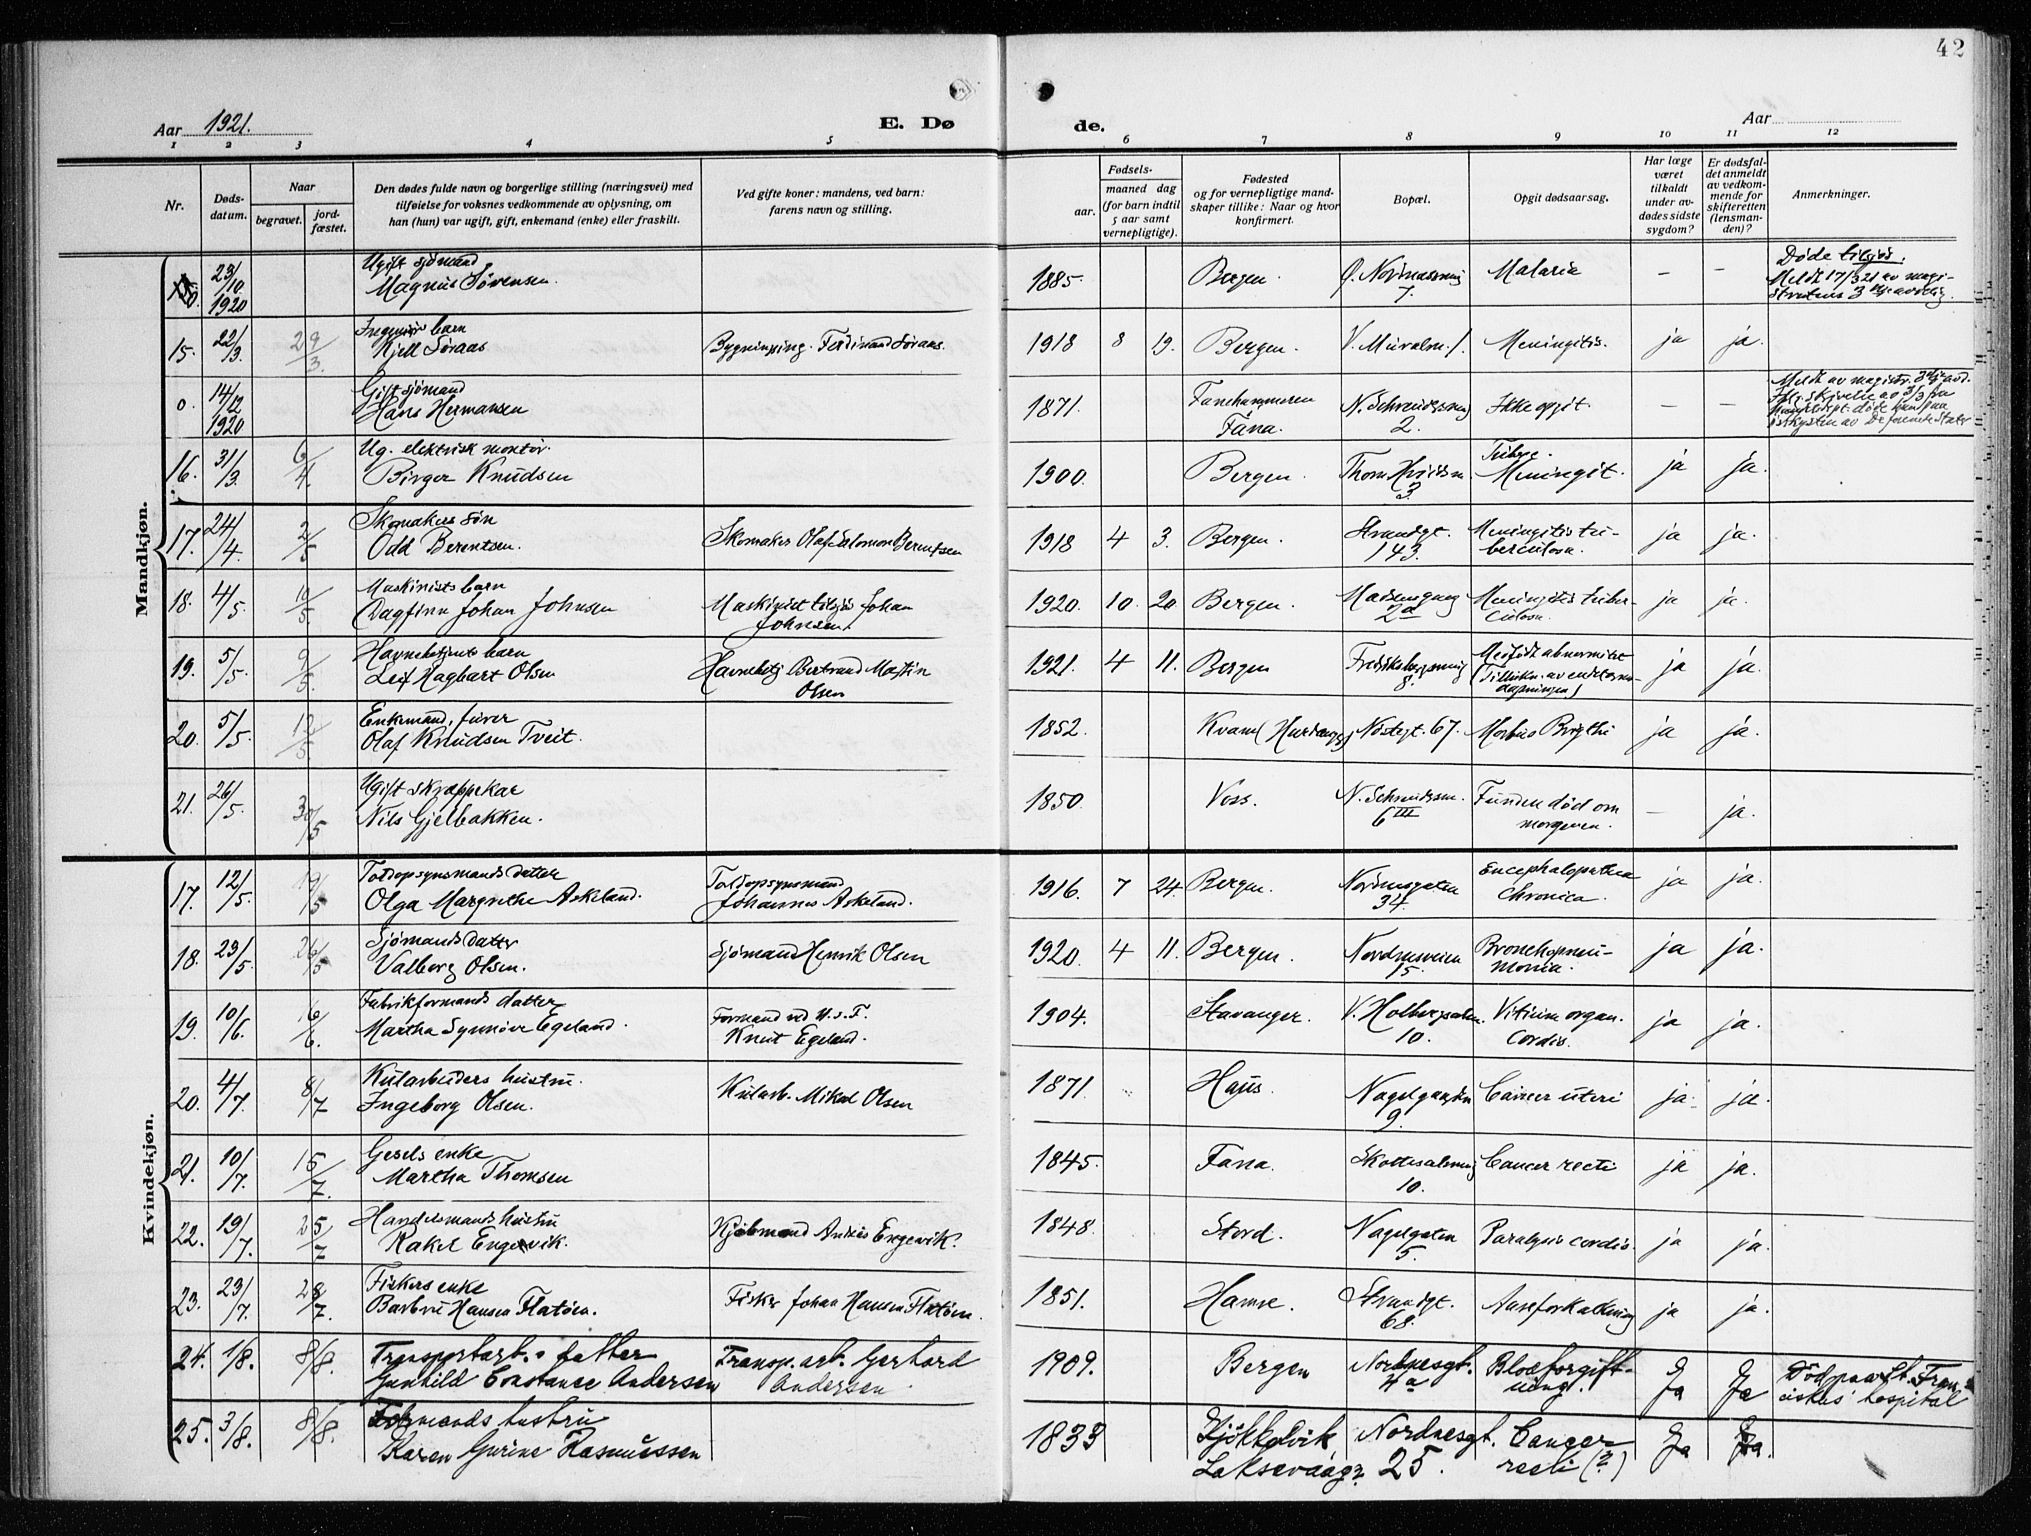 42
Aar 1921.
E. Dø
de.
Aar
1 2 3 4 5 6 7 8 9 10 11 12
Nr.
Døds-
datum.
Naar
begravet.
jord-
fæstet.
Den dødes fulde navn og borgerlige stilling (næringsvei) med
tilføielse for voksnes vedkommende av oplysning, om
han (hun) var ugift, gift, enkemand (enke) eller fraskilt.
Ved gifte koner: mandens, ved barn:
farens navn og stilling.
Fødsels-
aar.
maaned dag
(for barn indtil
5 aar samt
vernepligtige).
Fødested
og for vernepligtige mand-
skaper tillike: Naar og hvor
konfirmert.
Bopæl.
Opgit dødsaarsag.
Har læge
været
tilkaldt
under av-
dødes sidste
sygdom?
Er dødsfal-
det anmeldt
av vedkom-
mende for
skifteretten
(lensman-
den)?
Anmerkninger.
Mandkjøn.
0. 23/10 1920 Ugift sjømand
Magnus Sørensen. 1885. Bergen. Ø. Nordnessmug 7. Malaria — — Døde tilsjøs.
Meldt 17/3 21 av magi-
stratens 3dje avdelig.
15. 22/3. 29/3. Ingeniør barn
Kjell Søraas Bygningsing. Ferdinand Søraas. 1918 8 19. Bergen. V. Muralm. 1. Meningitis. ja ja.
0 14/12 1920 Gift sjømand
Hans Hermansen 1871. Fanehammeren
Fana. N. Schreudersmug 2. Ikke opgit. — — Meldt av magistr. 3dje avd.
16. 31/3. 6/4. Ug. elektrisk montør.
Birger Knudsen 1900. Bergen. Thorm Hviidsm. 3. Tuberc.
Meningit. ja ja.
17. 24/4 2/5 Skomakers søn
Odd Berentsen. Skomaker Olaf Salomon Berentsen 1918 4 3. Bergen. Strandgt. 143. Meningitis tu-
berculosa. ja ja.
18. 4/5. 10/5. Maskinists barn
Dagfinn Johan Johnsen Maskinist tilsjøs Johan
Johnsen. 1920. 10. 20. Bergen. Madsensmug 2a Meningitis tuber-
culosa. ja ja.
19. 5/5. 9/5. Havnebetjents barn
Leif Hagbart Olsen Havnebetj Bertrand Martin
Olsen 1921. 4 11. Bergen Fredriksbergsmug 8. Medfødt abnormitet ja ja.
20. 5/5. 12/5. Enkemand, fører
Olaf Knudsen Tveit. 1852. Kvam (Hardanger) Nøstegt. 67. Morbus Brigthi ja ja.
21. 26/5. 30/5 Ugift skræppekar
Nils Gjelbakken. 1850. Voss. N. Schreudersm. 6 III Funden død om
morgenen. — ja.
Kvindekjøn.
17. 12/5. 19/5 Toldopsynsmands datter
Olga Margrethe Askeland. Toldopsynsmand
Johannes Askeland. 1916. 7 24. Bergen. Nordnesgaten 34. Encephalopathia
Chronica. ja ja.
18. 23/5. 26/5 Sjømands datter
Valborg Olsen. Sjømand Henrik Olsen 1920. 4 11. Bergen. Nordnesveien 15. Bronchopneu-
monia. ja ja.
19. 10/6. 16/6. Fabrikformands datter
Martha Synnøve Egeland. Formand ved U.S.F.
Knut Egeland. 1904. Stavanger. V. Holbergsalm. 10. Vitium organ.
Cordis. ja ja.
20. 4/7. 8/7 Kularbeiders hustru.
Ingeborg Olsen. Kularb. Mikal Olsen 1871. Haus Nagelgaarden 9. Cancer uteri ja. ja.
21. 10/7. 15/7. Gesels enke
Martha Thomsen 1845. Fana. Skottesalmug 10. Cancer recti ja ja.
22. 19/7. 25/7 Handelsmands hustru
Rakel Engevik. Kjøbmand Anders Engevik. 1848. Stord. Nagelgaten 5. Paralysis cordis. ja ja.
23. 23/7. 28/7. Fiskers enke
Barbru Hansen Flatøen. Fisker Johan Hansen Flatøen. 1851. Hamre. Strandgt. 68. Aareforkalkning ja ja.
24. 1/8. 8/8. Transportarb.s datter
Gunhild Constance Andersen Transp. arb. Gerhard
Andersen. 1909. Bergen Nordnesgt. 4a Blodforgift-
ning. Ja Ja Død paa St. Fran-
ciskus' hospital
25. 3/8. 8/8. Formands hustru
Karen Gurine Rasmussen 1833 Gjøkkelvik,
Laksevaag? Nordnesgt. 25. Cancer
recti (?) Ja Ja.